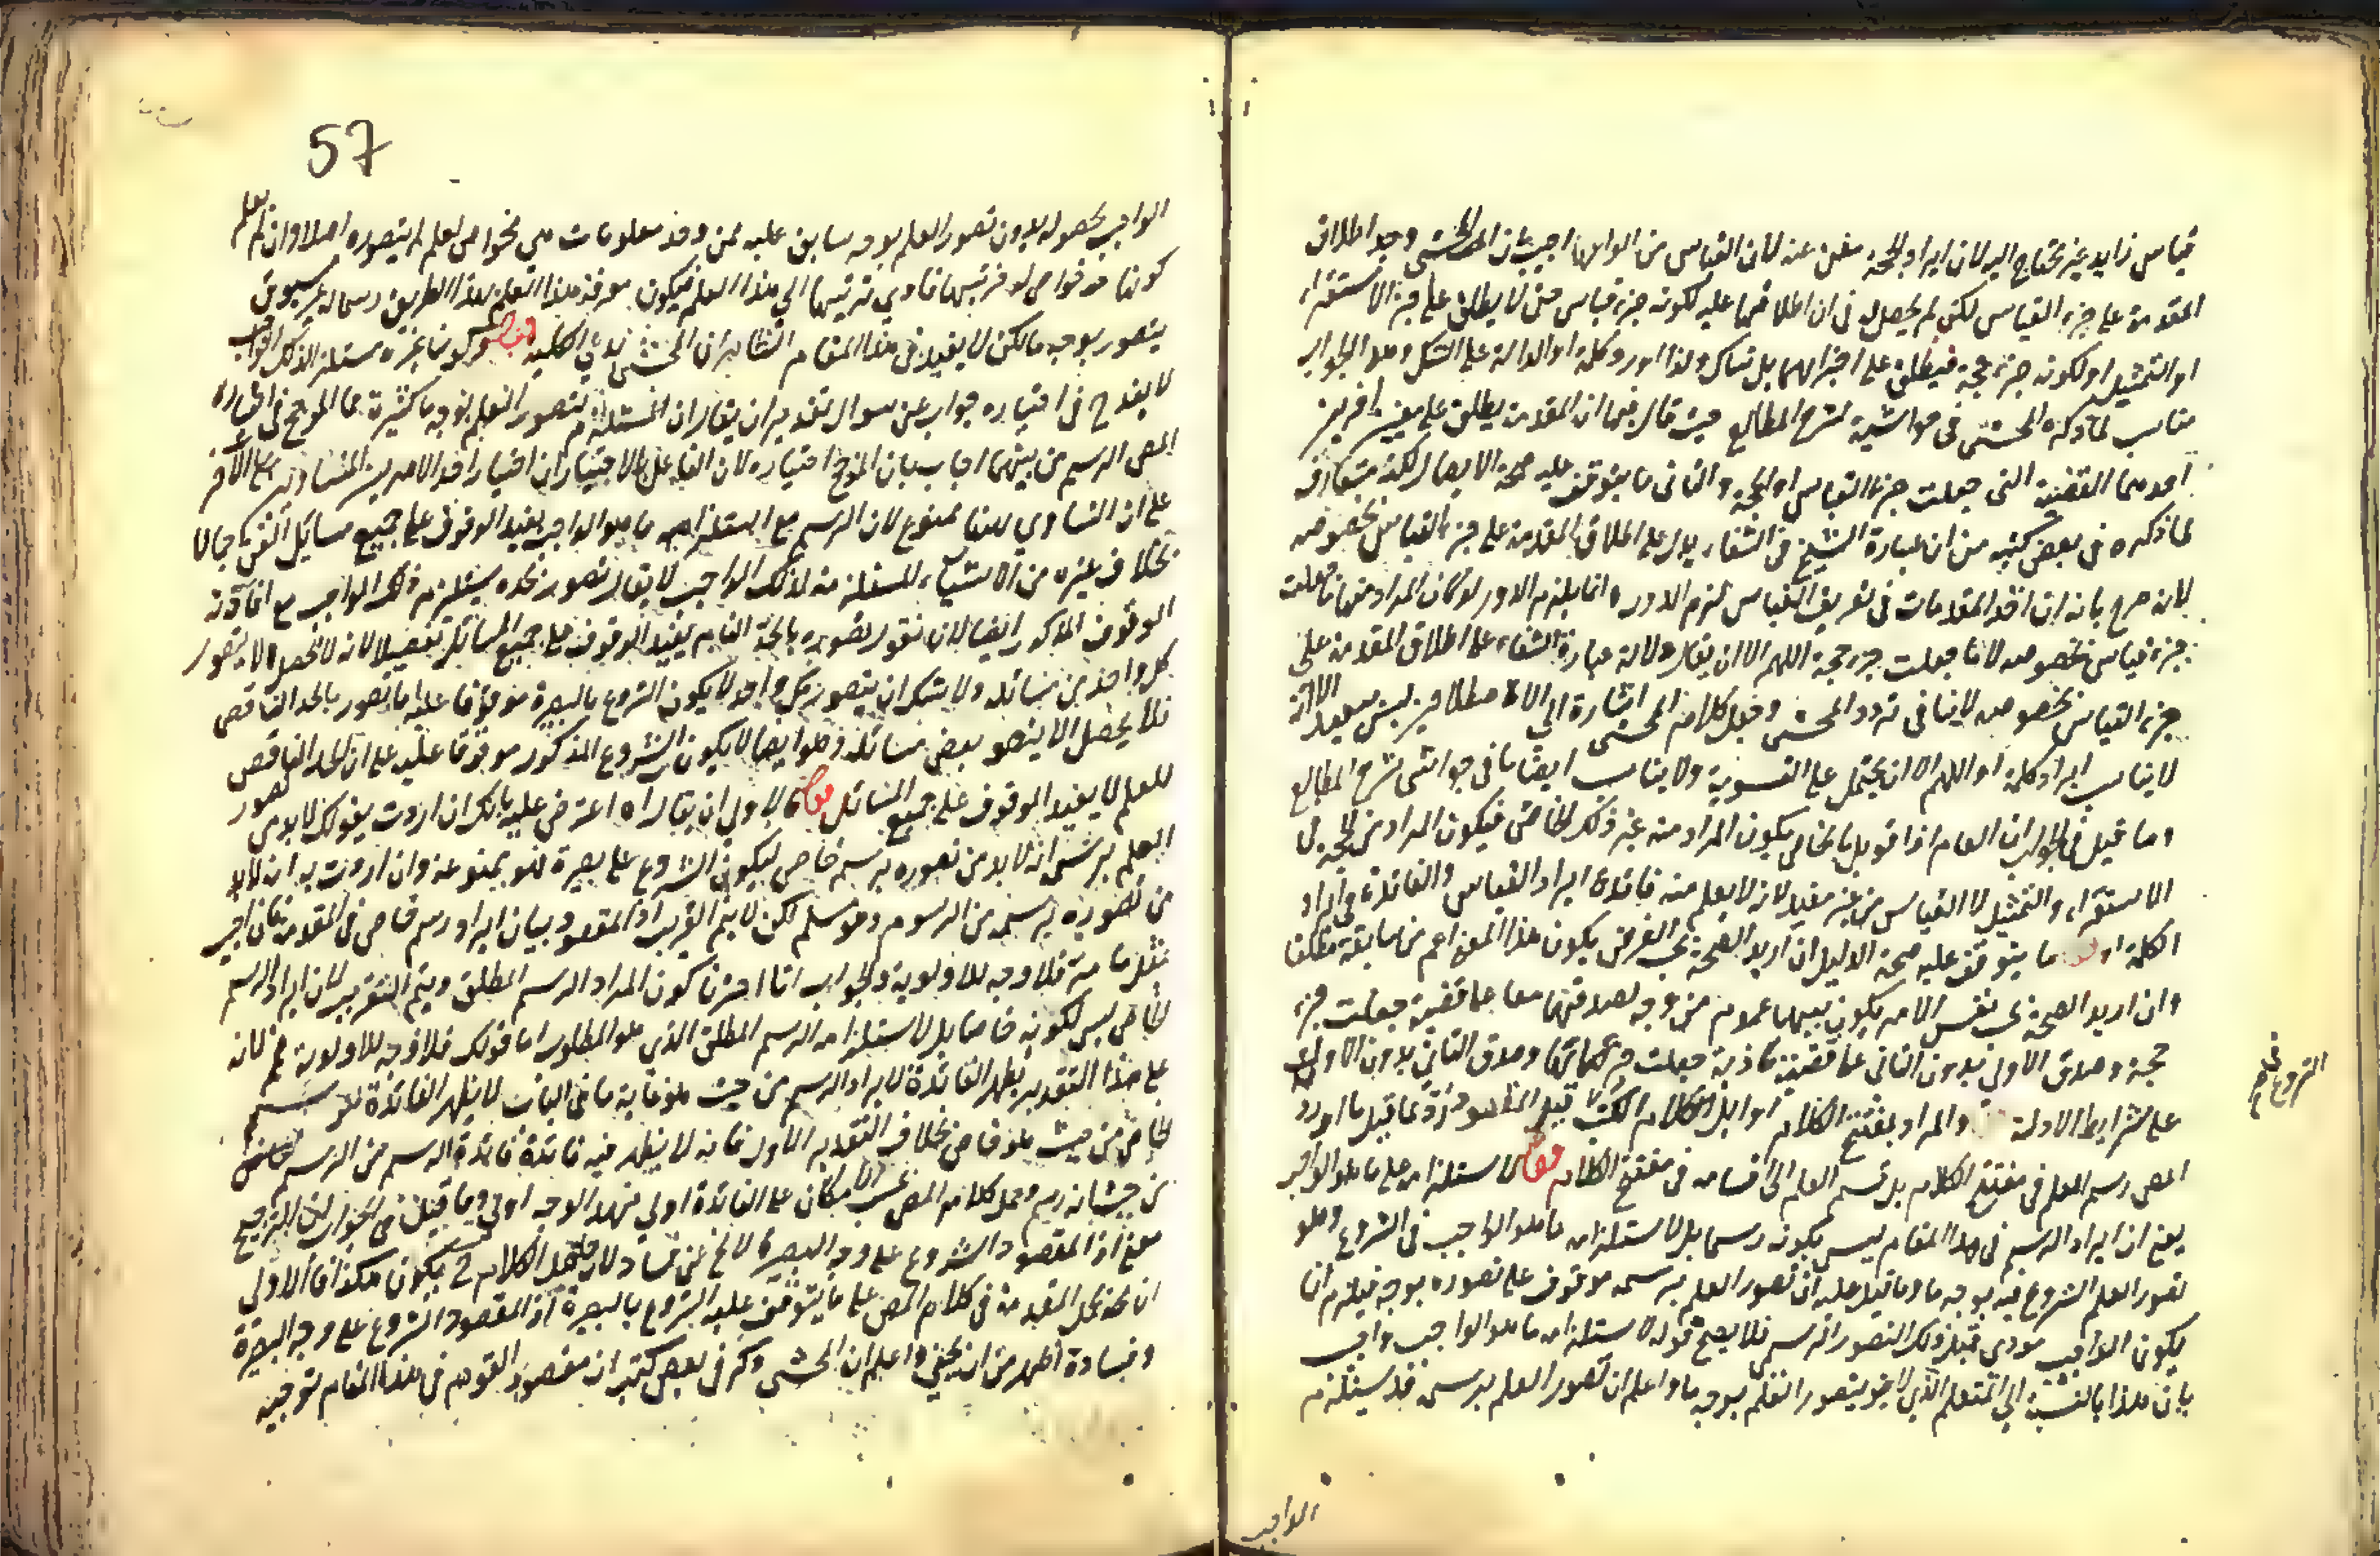 قياس زايد غير محتاج اليه لان ايراد الحجة مغن عنه لان القياس من انواعها اجيب بان المحشى وجد اطلاق
المقدمة على جزء القياس لكن لم يحصل له ان اطلاقها عليه لكونه جزء قياس حتى لا يطلق على جزء الاستقراء
او التمثيل او لكونه جزء حجة فيطلق على اجزائهما بل شاك ولذا اورد كلمة او الدالة على الشك وهذا الجواب
مناسب لما ذكره المحشى فى حواشيه لشرح المطالع حيث قال فيها ان المقدمة يطلق على معنيين اخريين
احدهما القضية التى جعلت جزء القياس او الحجة والثانى ما يتوقف عليه صحة الايصال لكنه
لما ذكره فى بعض كتبه من ان عبارة الشيخ فى الشفاء يدل على اطلاق المقدمة على جزء القياس بخصوصه
لانه صرح بانه ان اخذ المقدمات فى تعريف القياس لزم الدور وانما يلزم الدور لو كان المراد منها ما جعلت
جزء قياس بخصوصه لا ما جعلت جزء حجة اللهم الا ان يقال دلالة عبارة الشفاء على اطلاق المقدمة على
جزء القياس بخصوصه لا ينافى تردد المحشى وجعل كلام المحشى اشارة الى الاصطلاحين ليس ببعيد الا انه
لا يناسب ايراد كلمة او اللهم الا ان يحمل على التسوية ولا يناسب ايضا ما فى حواشى شرح المطالع
وما قيل فى الجواب ان العام اذا قوبل بالخاص يكون المراد منه غير ذلك الخاص فيكون المراد من الحجة
الاستقراء والتمثيل لا القياس من غير مفيد لانه لا يعلم منه فائدة ايراد القياس والفائدة فى ايراد
الكلمة او ما يتوقف عليه صحة الدليل ان اريد الصحة بحسب الغرض يكون هذا المعنى اعم من سابقه مطلقا
وان اريد الصحة بحسب نفس الامر يكون بينهما عموم من وجه لصدقهما معا على قضية جعلت جزء
حجة وصدق الاول بدون الثانى على قضية كاذبة جعلت جزء وصدق الثانى بدون الاول
على شرايط الادلة والمراد بمفتتح الكلام اوايل الكلام قيل ما اورد
المص رسم العلم فى مفتتح الكلام بل قسم العلم الى اقسامه فى مفتتح الكلام لاستلزامه على ما هو الواجب
يعنى ان ايراد الرسم فى هذا المقام ليس بكونه رسما بل لاستلزامه ما هو الواجب فى الشروع وهو
تصور العلم الشروع فيه بوجه ما وما قيل عليه ان تصور العلم برسمه موقوف على تصوره بوجه فيلزم ان
يكون الواجب مودى قبل ذلك التصور الرسمى فلا يصح قوله لاستلزامه ما هو الواجب واجيب
بان هذا بالنسبة الى المتعلم الذى لا يتصور العلم بوجه ما واعلم ان تصور العلم برسمه قد يستلزم
الواجب
57
الواجب بحصوله بدون تصور العلم بوجه سابق عليه لمن وجد معلومات هى خواص لعلم لم يتصوره اصلا وان لم يعلم
كونها خواص له فرتبها فادى ترتيبها الى هذا العلم فيكون معرفة هذا العلم بهذا الطريق رسما له غير مسبوق
بتصور بوجه ما لكن لا يفيد فى هذا المقام الظاهر ان المحشى يدعى الكلية كون غيره مستلزما لذلك الواجب
لا يقدح فى اختياره جواب عن سوال تقديره ان يقال ان المستلزم لتصور العلم بوجه ما كثيرة فما المرجح فى اختيار
المص الرسم من بينها اجاب بان المرجح اختياره لان الفاعل بالاختيار ان اختيار احد الامرين المتساويين على الآخر
على ان التساوى ههنا ممنوع لان الرسم مع استلزامه ما هو الواجب يفيد الوقوف على جميع مسائل الفن اجمالا
بخلاف غيره من الاشياء المستلزمة لذلك الواجب لا يقال تصور بحده يستلزم ذلك الواجب مع افادته
الوقوف المذكور ايضا لانا نقول تصوره بالحد التام يفيد الوقوف على جميع المسائل تفصيلا لانه لا يحصل الا بتصور
كل واحد من مسائله ولا شك ان بتصور كل واحد لا يكون الشروع بالبصيرة موقوفا عليه اما تصور بالحد الناقص
فلا يحصل الا بتصور بعض مسائله وهو ايضا لا يكون الشروع المذكور موقوفا عليه على ان الحد الناقص
للعلم لا يفيد الوقوف على جميع المسائل الاولى ان يقال اه اعترض عليه بانك ان اردت بقولك لا بد من تصور
العلم برسمه انه لا بد من تصوره برسم خاص ليكون الشروع على بصيرة فهو ممنوع وان اردت به انه لا بد
من تصوره برسم من الرسوم وهو مسلم لكن لا يتم التقريب اذ المقصود بيان ايراد رسم خاص فى المقدمة فان اجيب
بمثل ما مر فلا وجه للاولوية والجواب انا اخترنا كون المراد الرسم المطلق ويتم التقريب لان ايراد الرسم
الخاص ليس لكونه خاصا بل لاستلزامه الرسم المطلق الذى هو المطلوب اما قولك فلا وجه للاولوية لانه
على هذا التقدير يظهر الفائدة لايراد الرسم من حيث هو غاية ما فى الباب لا يظهر الفائدة للرسم
الخاص من حيث هو خاص بخلاف التقدير الاول فانه لا يظهر فيه فائدة فائدة الرسم من الرسم
من حيث انه رسم وحمل كلام المص بحسب الامكان على الفائدة اولى فهذا الوجه اولى وما قيل فى الجواب ان الترجيح
معنى اذ المقصود الشروع على وجه البصيرة لا يخ عن فساد لان محصل الكلام ح يكون هكذا فالاولى
ان يحمل المقدمة فى كلام المص على ما يتوقف عليه الشروع بالبصيرة اذ المقصود الشروع على وجه البصيرة
وفساده اظهر من ان يخفى واعلم ان المحشى ذكر فى بعض كتبه ان مقصود القوم فى هذا المقام توجيه